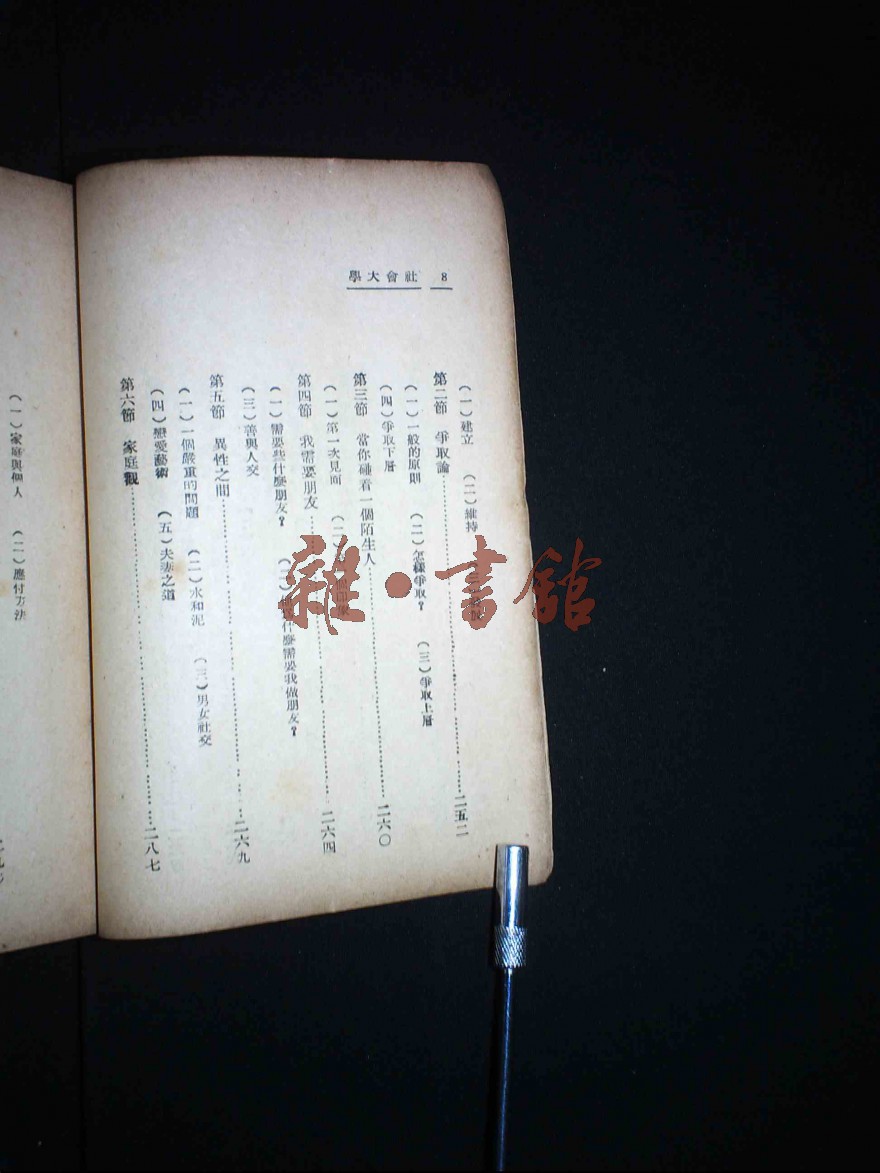 8 社會大學
（一）建立 （二）維持
第二節 爭取論…………二五二
（一）一般的原則 （二）怎樣爭取？ （三）爭取上層
（四）爭取下層
第三節 當你碰着一個陌生人…………二六〇
（一）第一次見面
第四節 我需要朋友…………二六四
（一）需要些什麼朋友？ 什麼需要我做朋友？
（三）善與人交
第五節 異性之間…………二六九
（一）一個嚴重的問題 （二）水和泥 （三）男女社交
（四）戀愛藝術 （五）夫妻之道
第六節 家庭觀…………二八七
（一）家庭與個人 （二）應付方法
雜·書館